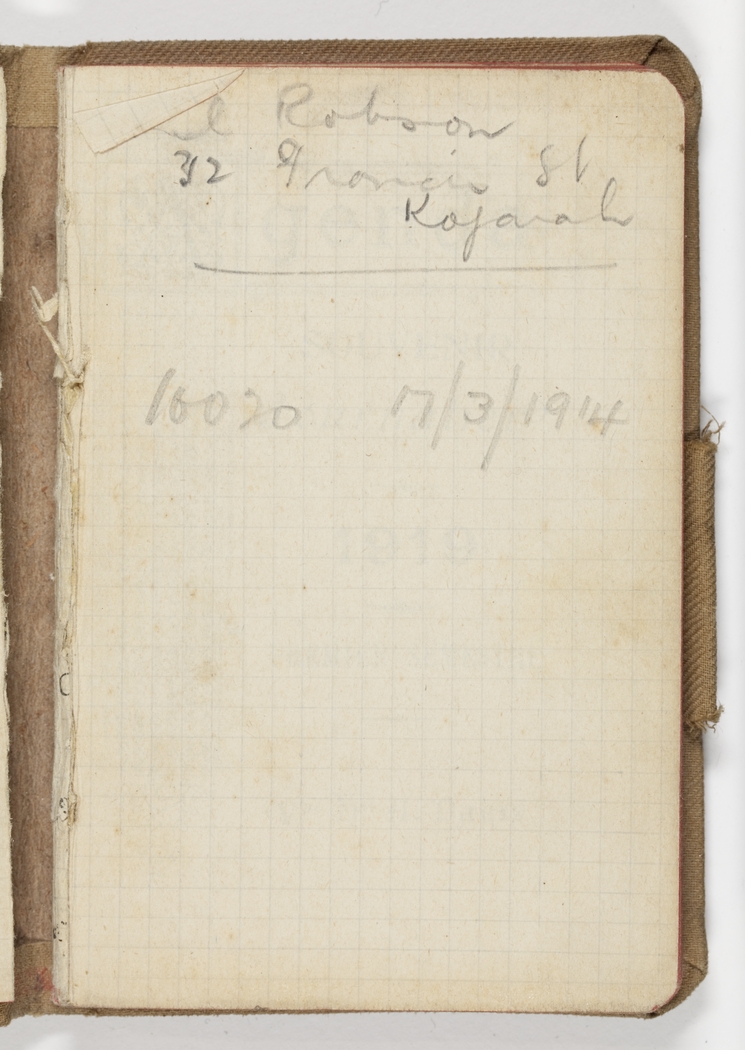 Robson
32 Francis St
Kogarah
16020 17/3/1914